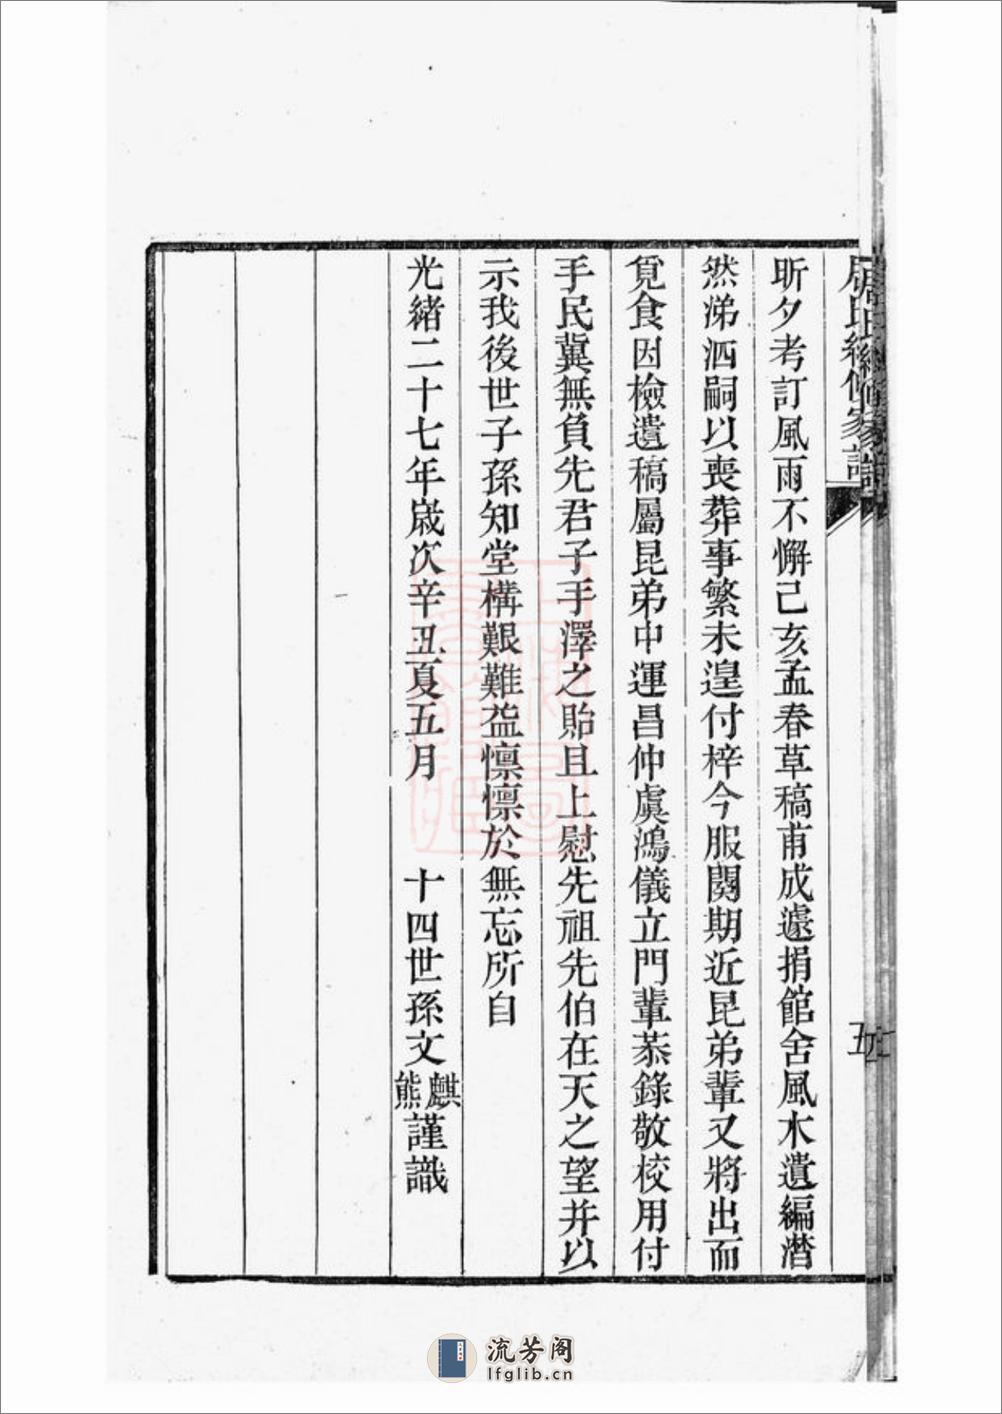 昕夕考訂風雨不懈己亥孟春草稿甫成遽捐館舍風木遺編潸
然涕泗嗣以喪葬事繁未遑付梓今服闋期近昆弟輩又將出而
覓食因檢遺稿屬昆弟中運昌仲虞鴻儀立門輩恭錄敬校用付
手民冀無負先君子手澤之貽且上慰先祖先伯在天之望并以
示我後世子孫知堂構艱難益懍懍於無忘所自
光緒二十七年歲次辛丑夏五月 十四世孫文麒熊謹識
五
流芳阁
lfglib.cn